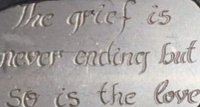 The grief is
never ending but
so is the love